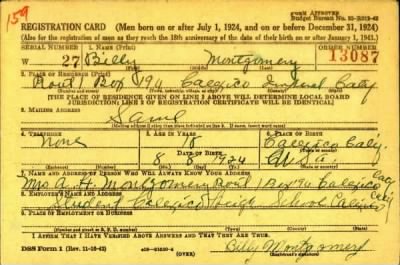 159
FORM APPROVED
REGISTRATION CARD (Men born on or after July 1, 1924, and on or before December 31, 1924)
(Also for the registration of men as they reach the 18th anniversary of the date of their birth on or after January 1, 1943.)
SERIAL NUMBER 1. NAME (Print) ORDER NUMBER
W 27 Billy Montgomery 13087
2. PLACE OF RESIDENCE (Print)
Rout 1 Box 94 Calexico Imperial Caly
[THE PLACE OF RESIDENCE GIVEN ON LINE 2 ABOVE WILL DETERMINE LOCAL BOARD
JURISDICTION; LINE 2 OF REGISTRATION CERTIFICATE WILL BE IDENTICAL]
3. MAILING ADDRESS
Same
4. TELEPHONE 5. AGE IN YEARS 6. PLACE OF BIRTH
None 18 Calexico Caly.
DATE OF BIRTH
8 8 1924 U.S.A.
7. NAME AND ADDRESS OF PERSON WHO WILL ALWAYS KNOW YOUR ADDRESS
Mrs. A. H. Montgomery Rout 1 Box 94 Calexico Caly
8. EMPLOYER'S NAME AND ADDRESS
Student Calexico High School Calexico Caly
9. PLACE OF EMPLOYMENT OR BUSINESS
I AFFIRM THAT I HAVE VERIFIED ABOVE ANSWERS AND THAT THEY ARE TRUE.
DSS Form 1 (Rev. 11-16-42) (OVER) Billy Montgomery